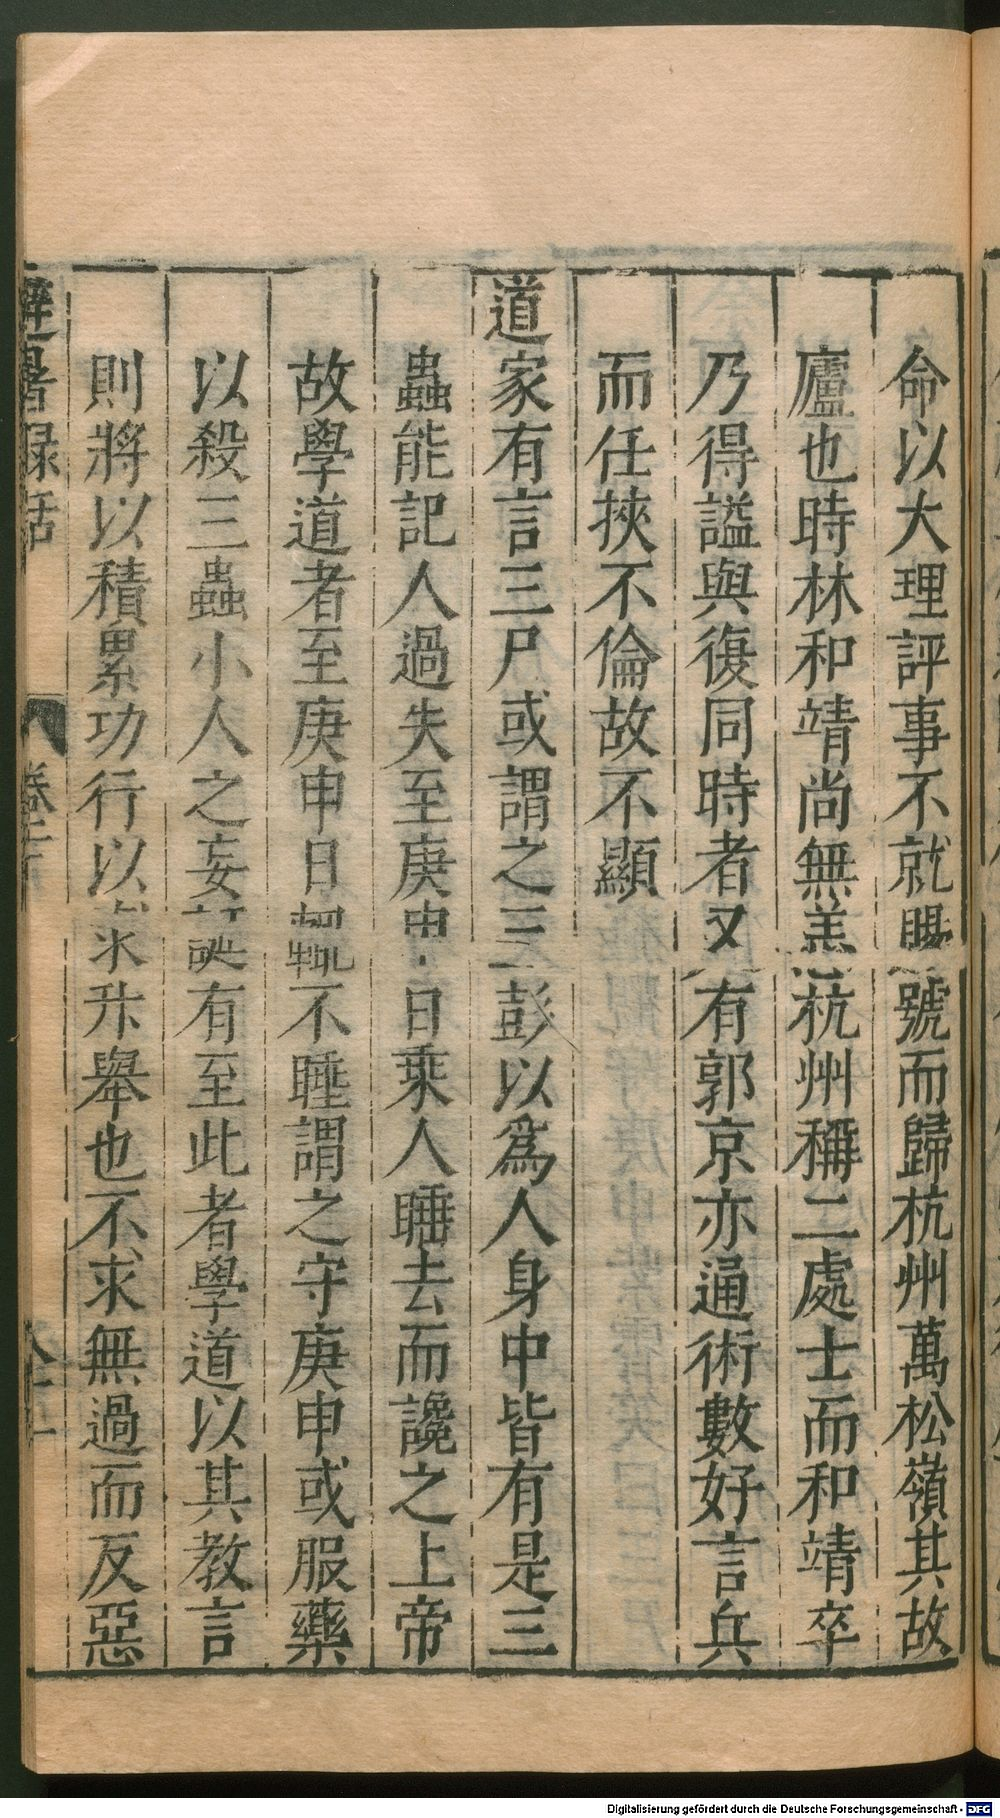 命以大理評事不就賜號而歸杭州萬松嶺其故
廬也時林和靖尚無恙杭州稱二處士而和靖卒
乃得謚與復同時者又有郭京亦通術數好言兵
而任挾不倫故不顯
道家有言三尸或謂之三彭以爲人身中皆有是三
蟲能記人過失至庚申日乘人睡去而讒之上帝
故學道者至庚申日輒不睡謂之守庚申或服藥
以殺三蟲小人之妄誕有至此者學道以其教言
則將以積累功行以求升舉也不求無過而反惡
避暑録話
卷下
Digitalisierung gefördert durch die Deutsche Forschungsgemeinschaft - DFG